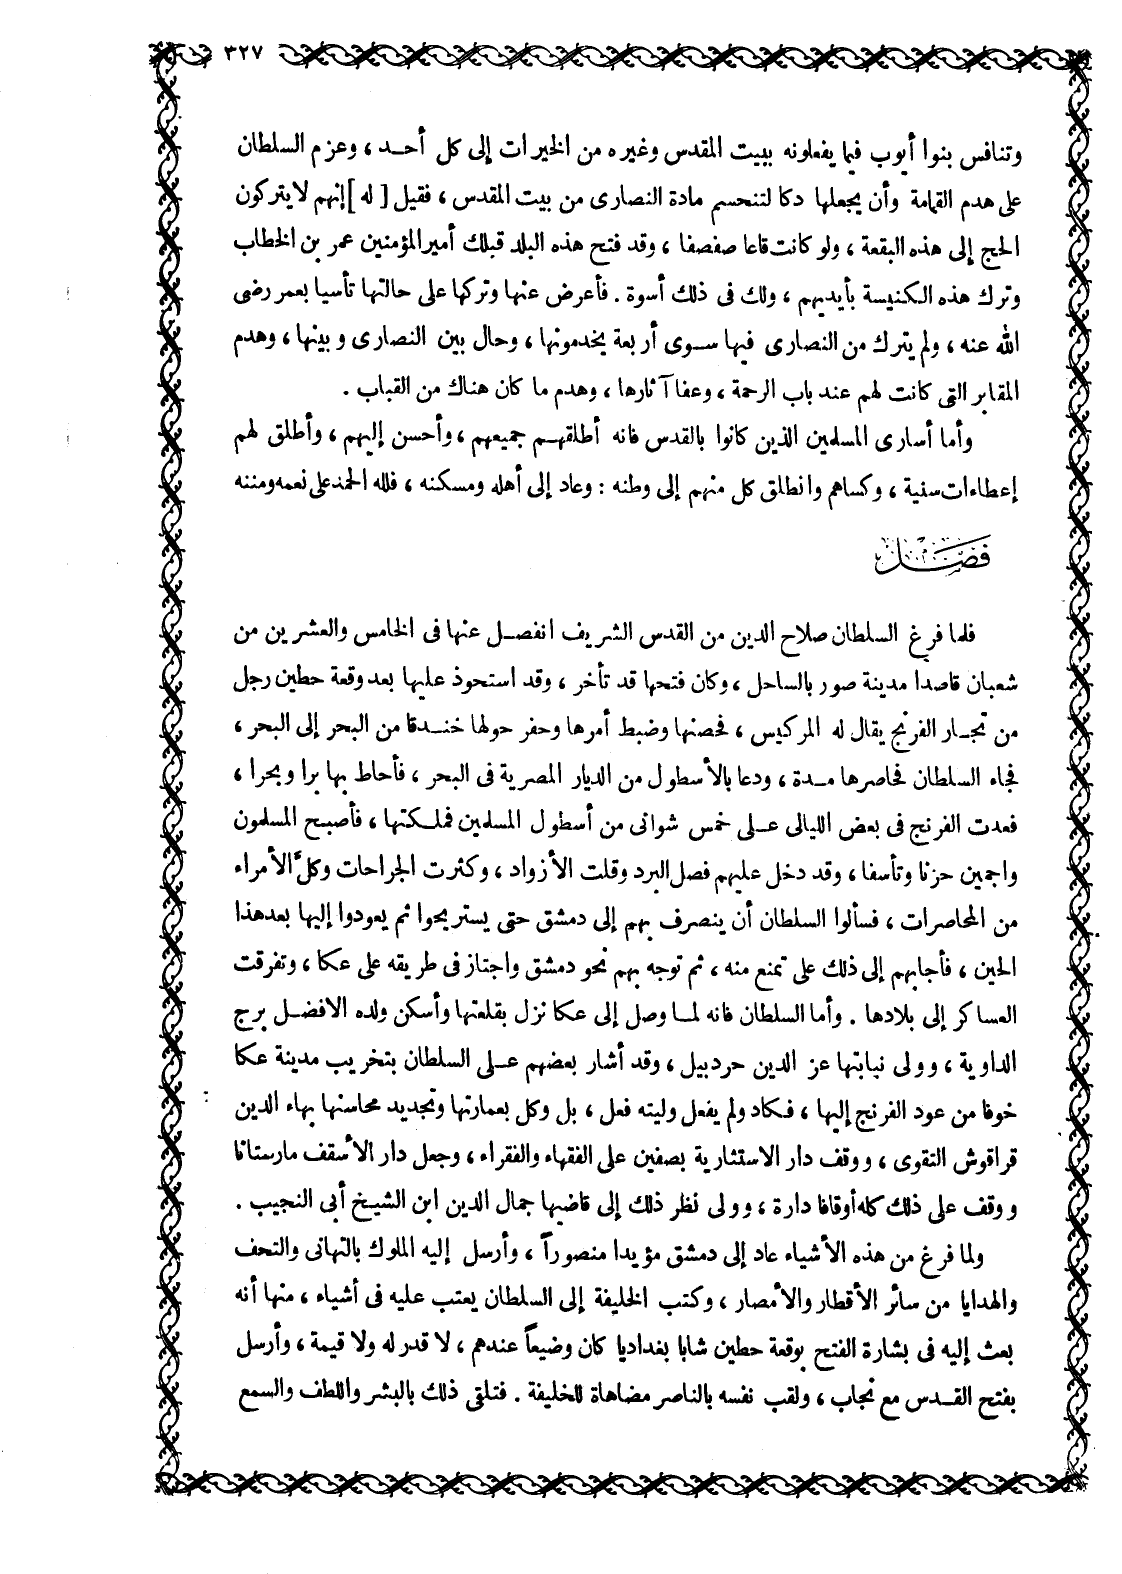 ٣٢٧
وتنافس بنوا أيوب فيما يفعلونه ببيت المقدس وغيره من الخيرات إلى كل أحد ، وعزم السلطان
على هدم القمامة وأن يجعلها دكا لتنحسم مادة النصارى من بيت المقدس ، فقيل [ له ] إنهم لا يتركون
الحج إلى هذه البقعة ، ولو كانت قاعا صفصفا ، وقد فتح هذه البلد قبلك أمير المؤمنين عمر بن الخطاب
وترك هذه الكنيسة بأيديهم ، ولك فى ذلك أسوة . فأعرض عنها وتركها على حالتها تأسيا بعمر رضى
الله عنه ، ولم يترك من النصارى فيها سوى أربعة يخدمونها ، وحال بين النصارى وبينها ، وهدم
المقابر التى كانت لهم عند باب الرحمة ، وعفا آثارها ، وهدم ما كان هناك من القباب .
وأما أسارى المسلمين الذين كانوا بالقدس فانه أطلقهم جميعهم ، وأحسن إليهم ، وأطلق لهم
إعطاءات سنية ، وكساهم وانطلق كل منهم إلى وطنه : وعاد إلى أهله ومسكنه ، فلله الحمد على نعمه ومننه
فصل
فلما فرغ السلطان صلاح الدين من القدس الشريف انفصل عنها فى الخامس والعشرين من
شعبان قاصدا مدينة صور بالساحل ، وكان فتحها قد تأخر ، وقد استحوذ عليها بعد وقعة حطين رجل
من تجار الفرنج يقال له المركيس ، فحصنها وضبط أمرها وحفر حولها خندقا من البحر إلى البحر ،
فجاء السلطان فحاصرها مدة ، ودعا بالأسطول من الديار المصرية فى البحر ، فأحاط بها برا وبحرا ،
فعدت الفرنج فى بعض الليالى على خمس شوانى من أسطول المسلمين فملكتها ، فأصبح المسلمون
واجمين حزنا وتأسفا ، وقد دخل عليهم فصل البرد وقلت الأزواد ، وكثرت الجراحات وكلَّ الأمراء
من المحاصرات ، فسألوا السلطان أن ينصرف بهم إلى دمشق حتى يستريحوا ثم يعودوا إليها بعد هذا
الحين ، فأجابهم إلى ذلك على تمنع منه ، ثم توجه بهم نحو دمشق واجتاز فى طريقه على عكا ، وتفرقت
العساكر إلى بلادها . وأما السلطان فانه لما وصل إلى عكا نزل بقلعتها وأسكن ولده الافضل برج
الداوية ، وولى نيابتها عز الدين حردبيل ، وقد أشار بعضهم على السلطان بتخريب مدينة عكا
خوفا من عود الفرنج إليها ، فكاد ولم يفعل وليته فعل ، بل وكل بعمارتها وتجديد محاسنها بهاء الدين
قراقوش التقوى ، ووقف دار الاستثارية بصفين على الفقهاء والفقراء ، وجعل دار الأسقف مارستانا
ووقف على ذلك كله أوقافا دارة ، وولى نظر ذلك إلى قاضيها جمال الدين ابن الشيخ أبى النجيب .
ولما فرغ من هذه الأشياء عاد إلى دمشق مؤيدا منصوراً ، وأرسل إليه الملوك بالتهانى والتحف
والهدايا من سائر الأقطار والأمصار ، وكتب الخليفة إلى السلطان يعتب عليه فى أشياء ، منها أنه
بعث إليه فى بشارة الفتح بوقعة حطين شابا بغداديا كان وضيعاً عندهم ، لا قدر له ولا قيمة ، وأرسل
بفتح القدس مع نجاب ، ولقب نفسه بالناصر مضاهاة للخليفة . فتلقى ذلك بالبشر واللطف والسمع